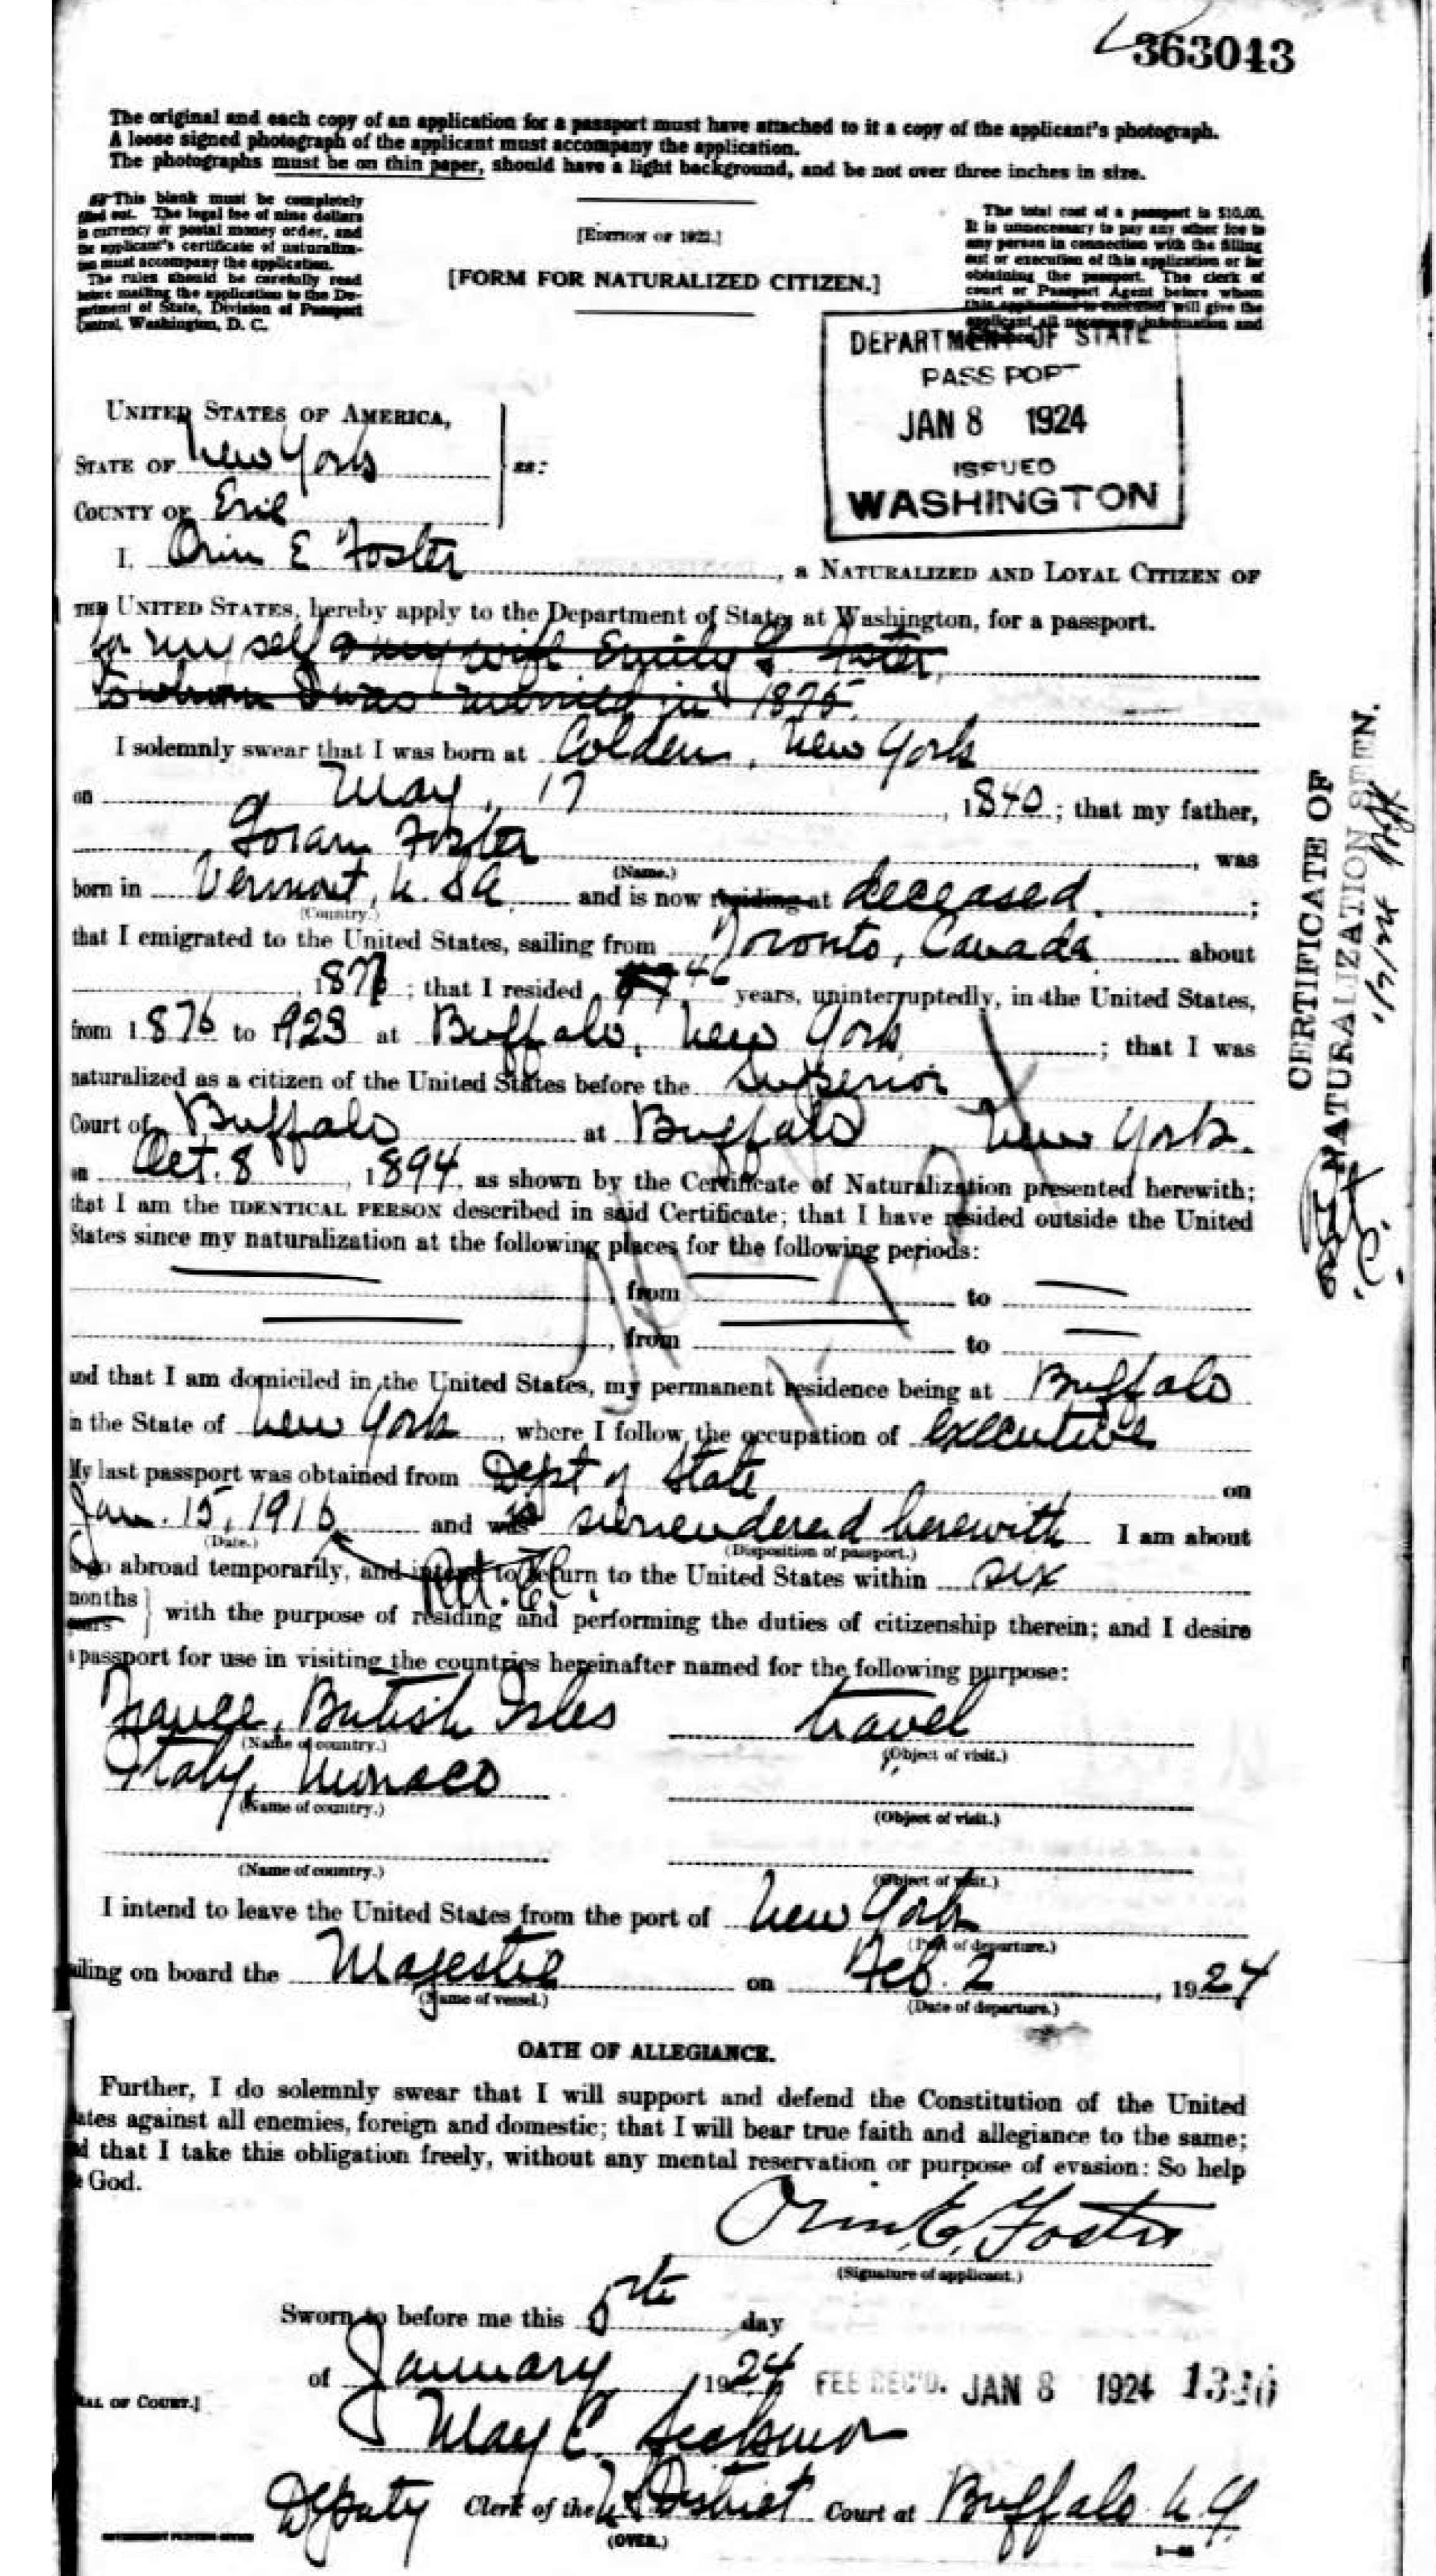 363043
The original and each copy of an application for a passport must have attached to it a copy of the applicant's photograph.
A loose signed photograph of the applicant must accompany the application.
The photographs must be on thin paper, should have a light background, and be not over three inches in size.
This blank must be completely
filled out. The legal fee of nine dollars
in currency or postal money order, and
the applicant's certificate of naturaliza-
tion must accompany the application.
The rules should be carefully read
before mailing the application to the De-
partment of State, Division of Passport
Control, Washington, D. C.
[EDITION OF 1922.]
[FORM FOR NATURALIZED CITIZEN.]
The total cost of a passport is $10.00.
It is unnecessary to pay any other fee to
any person in connection with the filling
out or execution of this application or for
obtaining the passport. The clerk of
court or Passport Agent before whom
this application is executed will give the
applicant all necessary information and
DEPARTMENT OF STATE
PASSPORT
JAN 8 1924
ISSUED
WASHINGTON
UNITED STATES OF AMERICA,
STATE OF New York
ss:
COUNTY OF Erie
I, Orin E Foster, a NATURALIZED AND LOYAL CITIZEN OF
THE UNITED STATES, hereby apply to the Department of State at Washington, for a passport.
for myself & my wife Emily G. Foster,
to whom I was married in 1875.
I solemnly swear that I was born at Colden, New York
on May, 17, 1840; that my father,
Foster, was
(Name.)
born in Vermont, U.S.A. and is now residing at deceased.;
(Country.)
that I emigrated to the United States, sailing from Toronto, Canada about
, 1876; that I resided 46 years, uninterruptedly, in the United States,
from 1876 to 1923 at Buffalo, New York; that I was
naturalized as a citizen of the United States before the Superior
Court of Buffalo at Buffalo, New York.
on Oct. 8, 1894, as shown by the Certificate of Naturalization presented herewith;
that I am the IDENTICAL PERSON described in said Certificate; that I have resided outside the United
States since my naturalization at the following places for the following periods:
, from to
, from to
and that I am domiciled in the United States, my permanent residence being at Buffalo
in the State of New York, where I follow the occupation of executive
My last passport was obtained from Dept of State on
Jan. 15, 1916 and was is surrendered herewith I am about
(Date.) (Disposition of passport.)
to go abroad temporarily, and intend to return to the United States within six
Ret.
months
years } with the purpose of residing and performing the duties of citizenship therein; and I desire
a passport for use in visiting the countries hereinafter named for the following purpose:
France, British Isles travel
(Name of country.) (Object of visit.)
Italy, Monaco
(Name of country.) (Object of visit.)
(Name of country.) (Object of visit.)
I intend to leave the United States from the port of New York
(Port of departure.)
sailing on board the Majestic on Feb. 2, 1924
(Name of vessel.) (Date of departure.)
OATH OF ALLEGIANCE.
Further, I do solemnly swear that I will support and defend the Constitution of the United
States against all enemies, foreign and domestic; that I will bear true faith and allegiance to the same;
and that I take this obligation freely, without any mental reservation or purpose of evasion: So help
me God.
Orin E. Foster
(Signature of applicant.)
Sworn to before me this 5th day
of January, 1924
FEE REC'D. JAN 8 1924
[SEAL OF COURT.]
May C.
Deputy Clerk of the U S District Court at Buffalo N.Y.
(OVER.)
CERTIFICATE OF
NATURALIZATION SEEN.
1/7/24